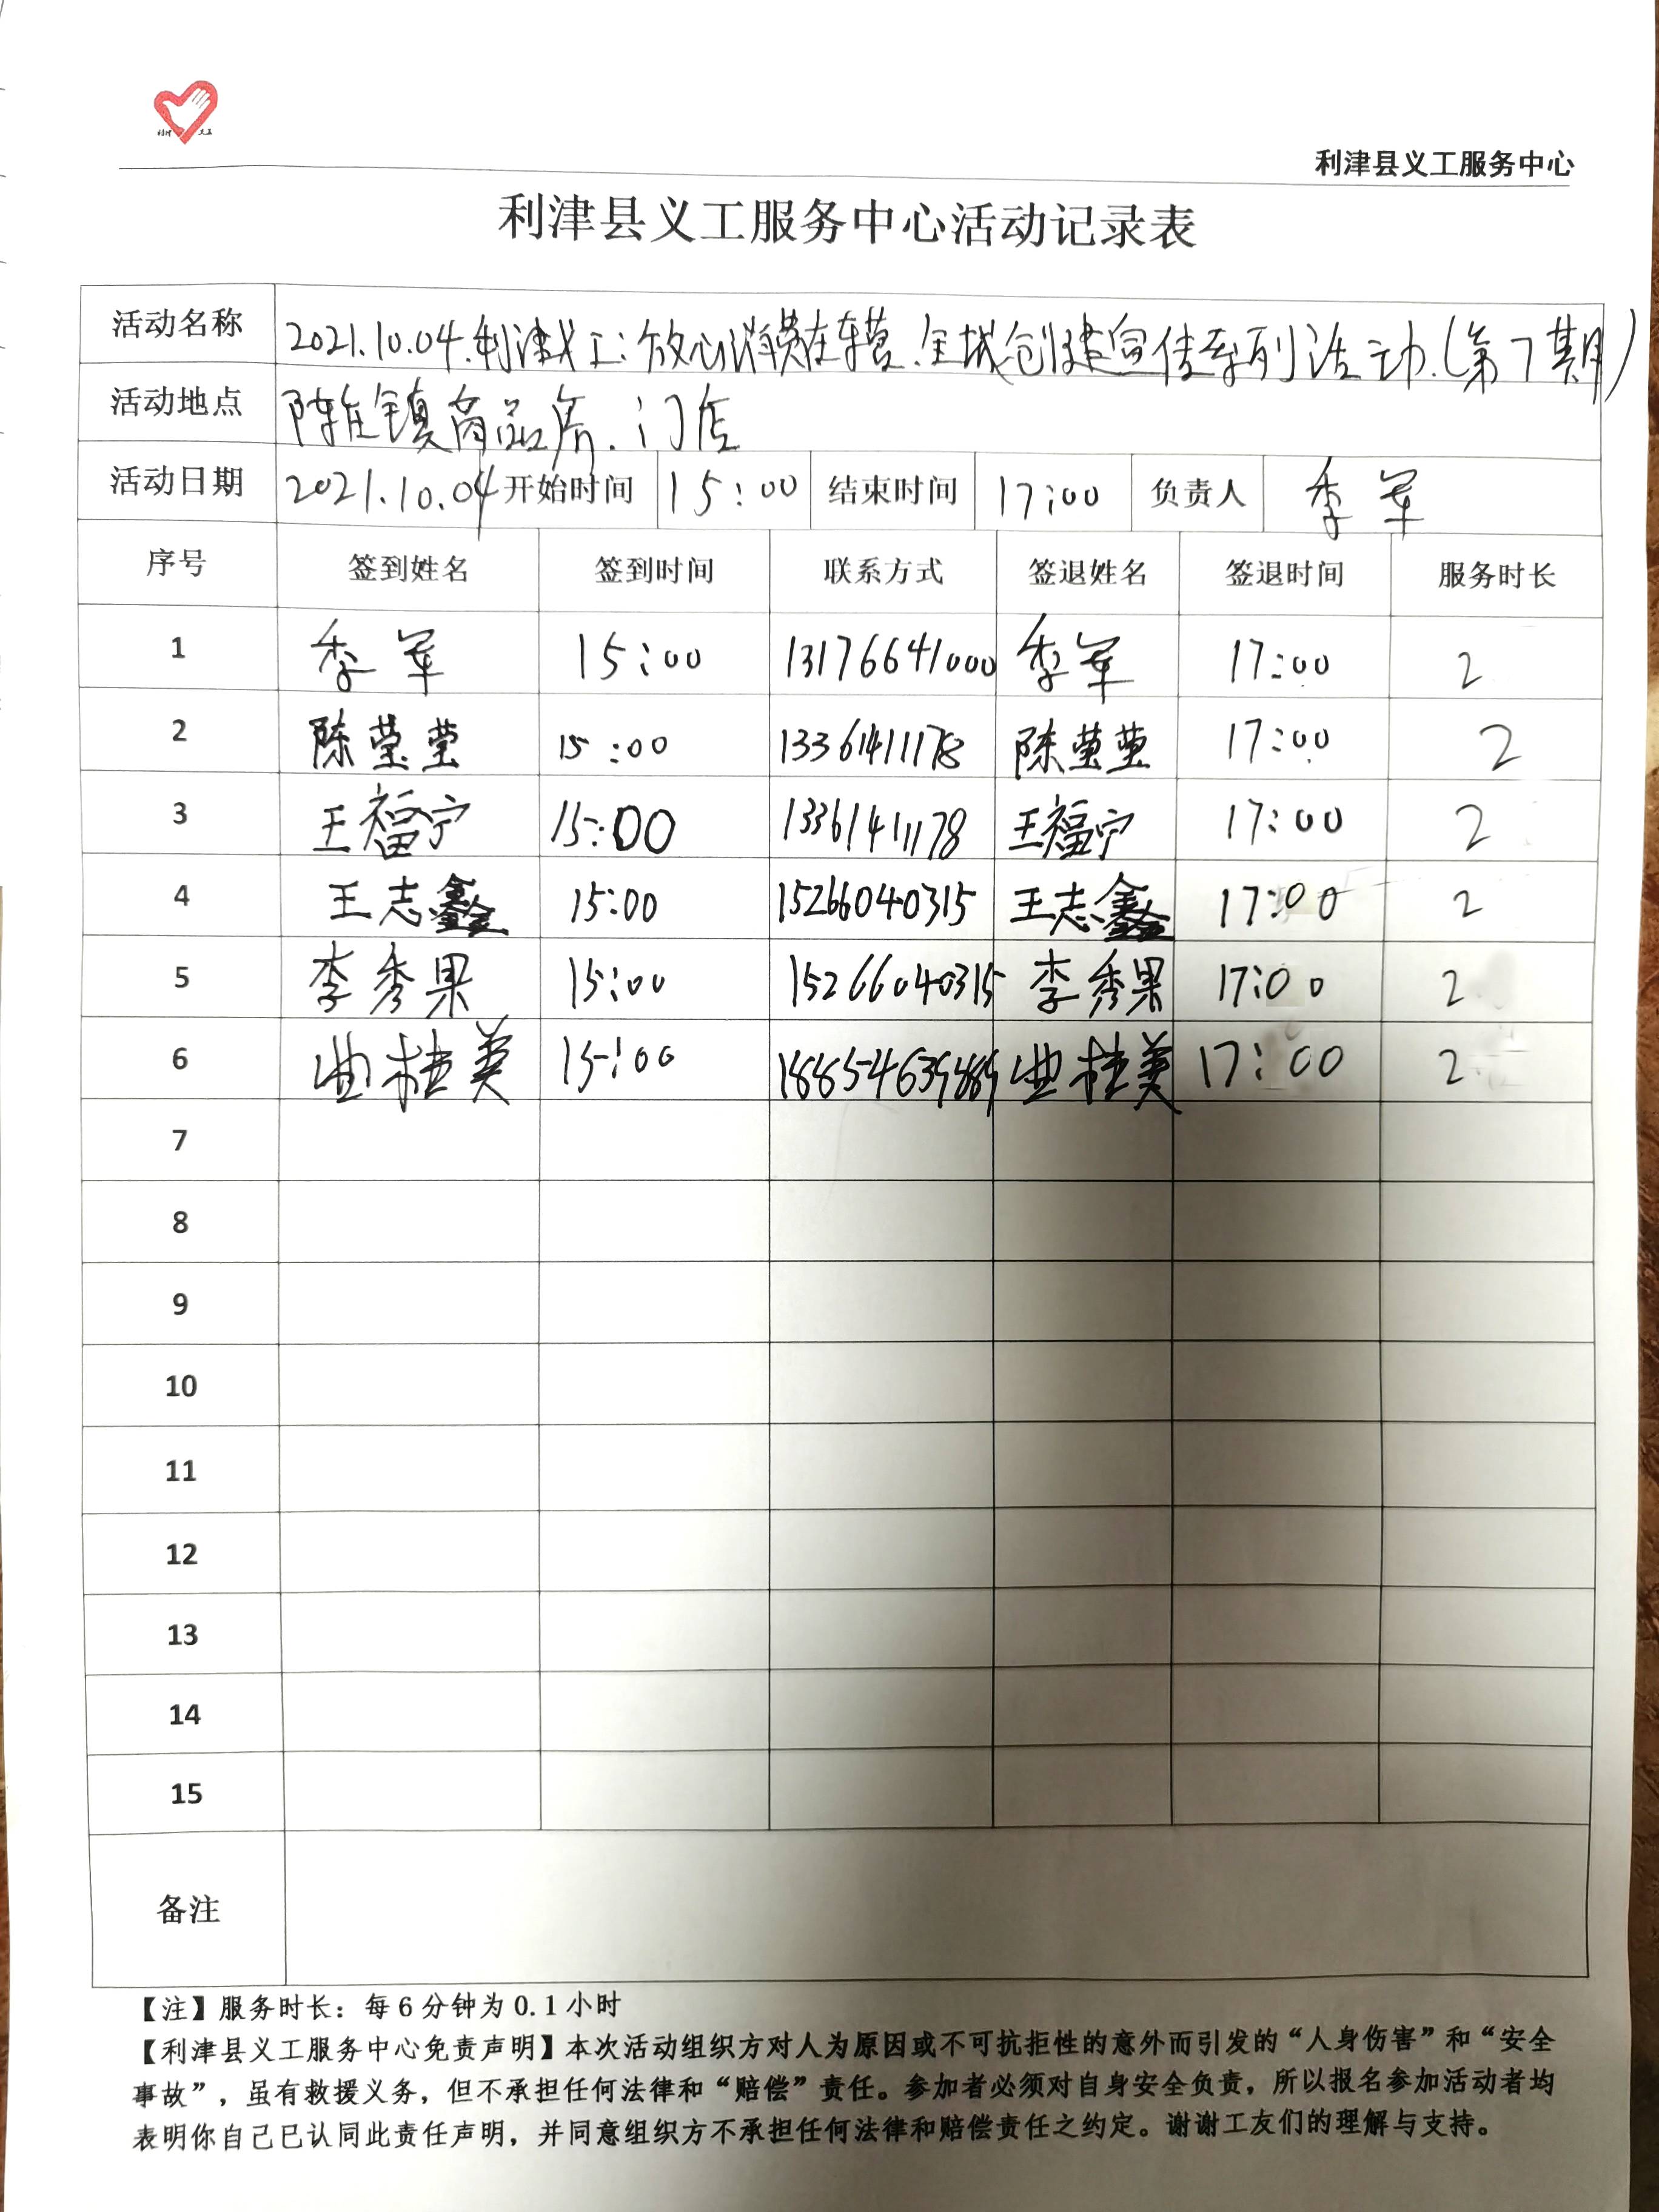 利津 义工
利津县义工服务中心
利津县义工服务中心活动记录表
活动名称 2021.10.04.利津义工:放心消费在东营.全域创建宣传系列活动.(第7期)
活动地点 陈庄镇商品房.门店
活动日期 2021.10.04 开始时间 15:00 结束时间 17:00 负责人 季军
序号 签到姓名 签到时间 联系方式 签退姓名 签退时间 服务时长
1 季军 15:00 13176641000 季军 17:00 2
2 陈莹莹 15:00 13361411178 陈莹莹 17:00 2
3 王福宁 15:00 13361411178 王福宁 17:00 2
4 王志鑫 15:00 15266040315 王志鑫 17:00 2
5 李秀果 15:00 15266040315 李秀果 17:00 2
6 曲桂美 15:00 曲桂美 17:00 2
7
8
9
10
11
12
13
14
15
备注
【注】服务时长：每6分钟为0.1小时
【利津县义工服务中心免责声明】本次活动组织方对人为原因或不可抗拒性的意外而引发的“人身伤害”和“安全
事故”，虽有救援义务，但不承担任何法律和“赔偿”责任。参加者必须对自身安全负责，所以报名参加活动者均
表明你自己已认同此责任声明，并同意组织方不承担任何法律和赔偿责任之约定。谢谢工友们的理解与支持。